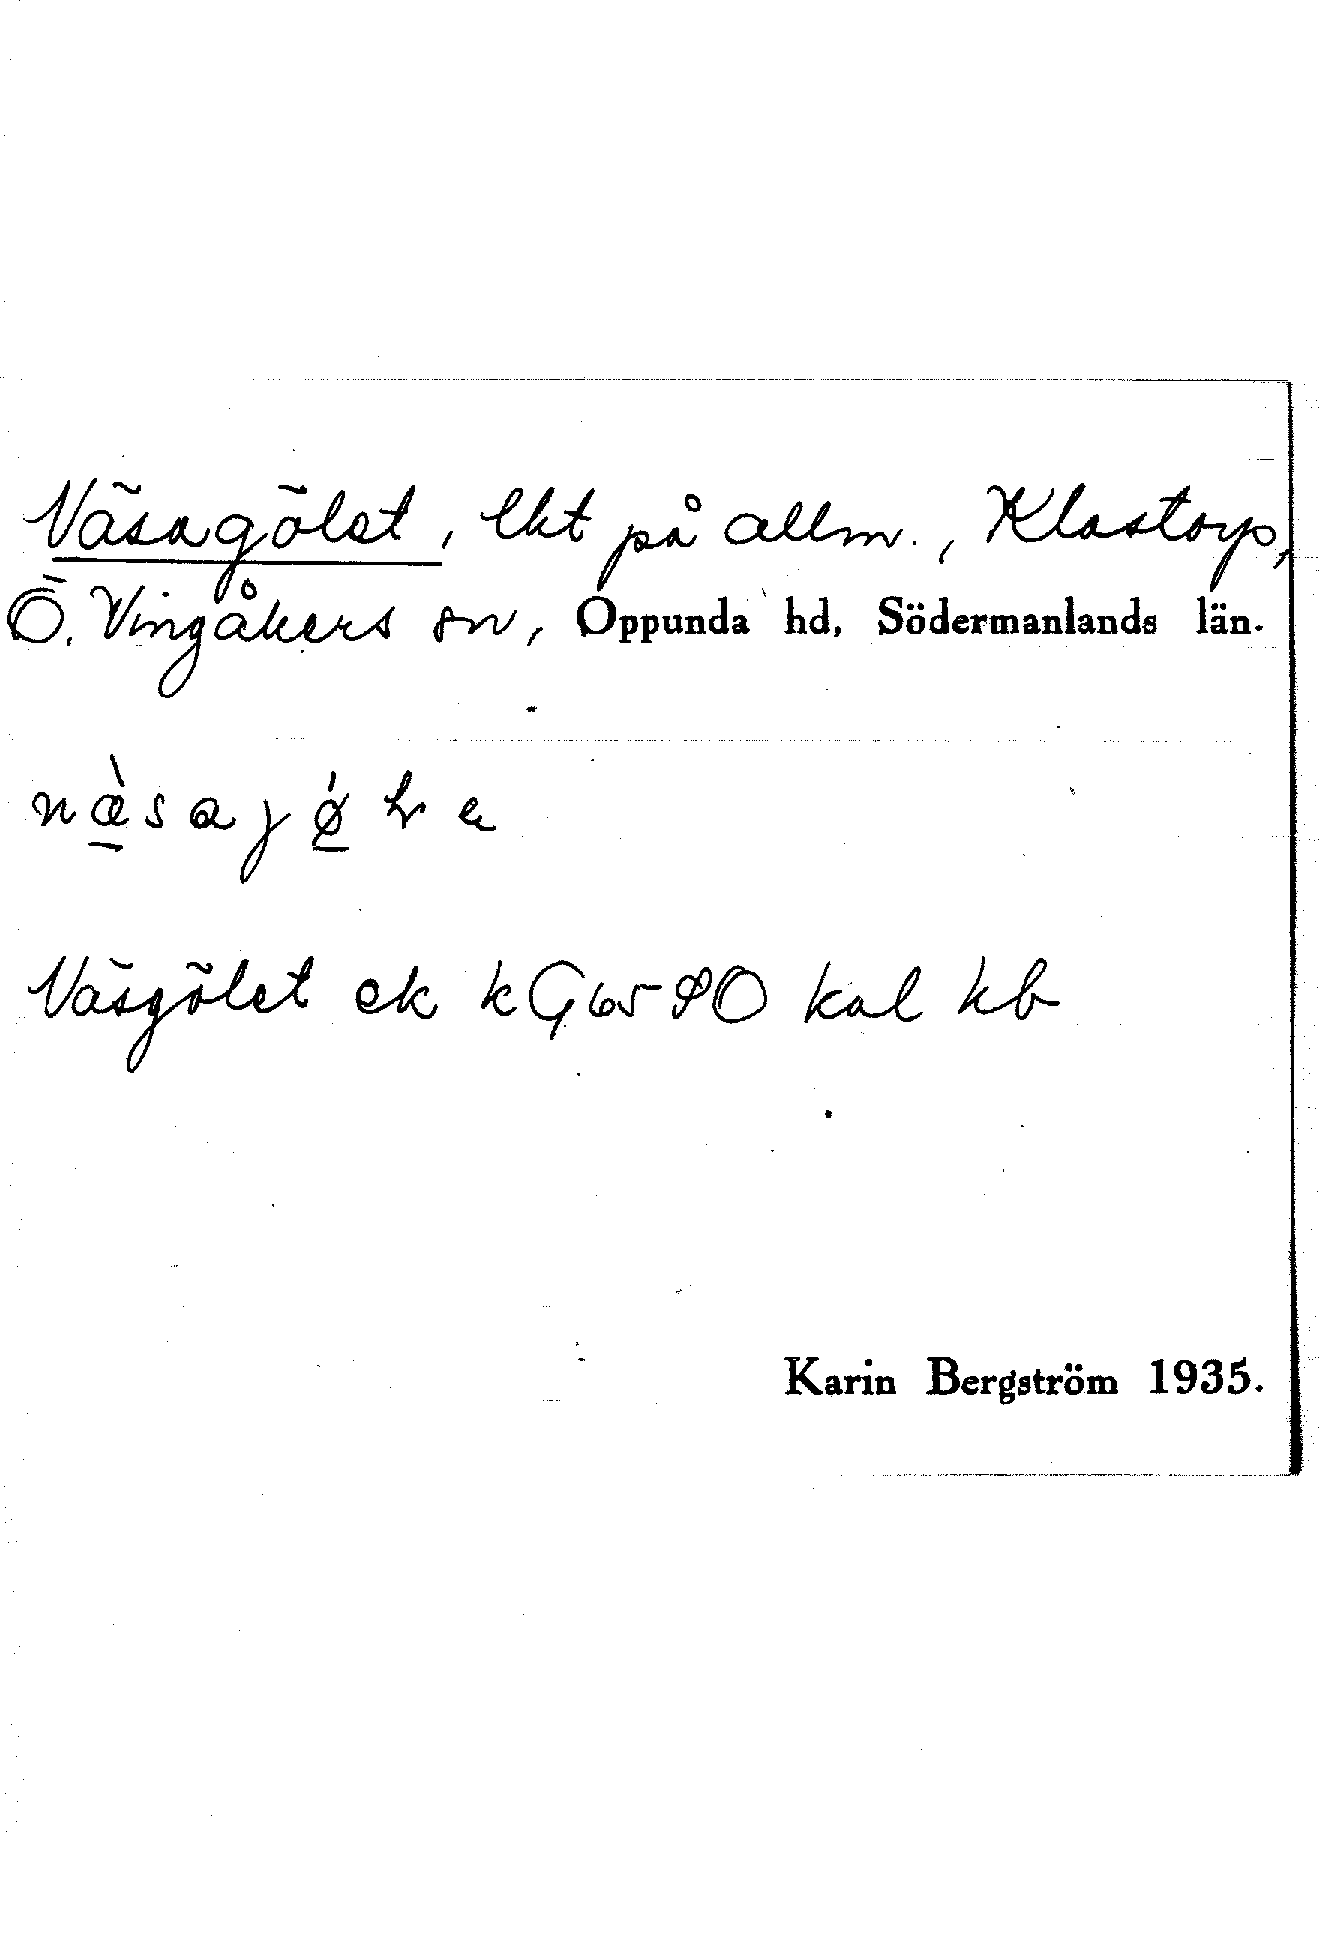 Näsagölet, lkt på allm., Klastorp,
Ö. Vingåkers sn, Oppunda hd, Södermanlands län.
Näsgölet ek kG65 SO kal kb
Karin Bergström 1935.